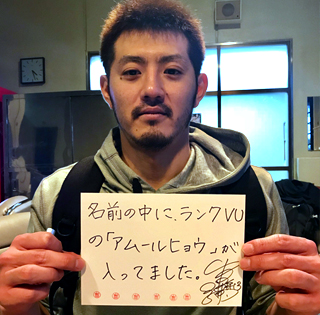 名前の中に、ランクVU
の「アムールヒョウ」が
入ってました。